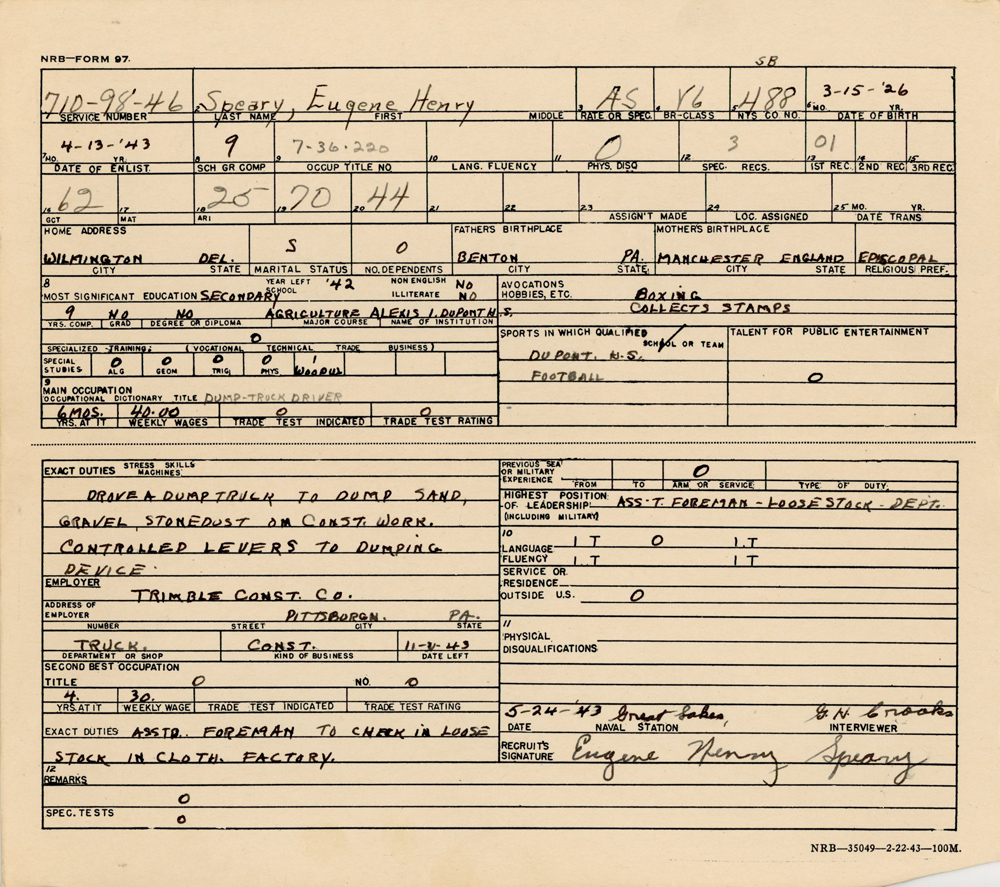 NRB—FORM 97.
SB
710-98-46 Speary, Eugene Henry AS V6 488 3-15-'26
SERVICE NUMBER 2 LAST NAME FIRST MIDDLE 3 RATE OR SPEC. 4 BR-CLASS 5 NTS CO. NO. 6 MO. DATE OF BIRTH YR.
4-13-'43 9 7-36-220 0 3 01
7 MO. DATE OF ENLIST. YR. 8 SCH GR COMP 9 OCCUP TITLE NO 10 LANG. FLUENCY 11 PHYS. DISQ 12 SPEC. RECS. 13 1ST REC. 14 2ND REC. 15 3RD REC.
62 25 70 44
16 GCT 17 MAT 18 ARI 19 20 21 22 23 ASSIGN'T MADE 24 LOC. ASSIGNED 25 MO. DATE TRANS YR.
HOME ADDRESS S 0 FATHERS BIRTHPLACE MOTHER'S BIRTHPLACE
WILMINGTON DEL. BENTON PA. MANCHESTER ENGLAND EPISCOPAL
CITY STATE MARITAL STATUS NO. DEPENDENTS CITY STATE CITY STATE RELIGIOUS PREF.
8 YEAR LEFT SCHOOL '42 NON ENGLISH NO
MOST SIGNIFICANT EDUCATION SECONDARY ILLITERATE NO
9 NO NO AGRICULTURE ALEXIS I. DUPONT H.S.
YRS. COMP. GRAD DEGREE OR DIPLOMA MAJOR COURSE NAME OF INSTITUTION
0
SPECIALIZED TRAINING: (VOCATIONAL TECHNICAL TRADE BUSINESS)
SPECIAL STUDIES 0 ALG 0 GEOM 0 TRIG 0 PHYS. 1
9
MAIN OCCUPATION
OCCUPATIONAL DICTIONARY TITLE DUMP-TRUCK DRIVER
6 MOS. 40.00 0 0
YRS. AT IT WEEKLY WAGES TRADE TEST INDICATED TRADE TEST RATING
AVOCATIONS
HOBBIES, ETC. BOXING
COLLECTS STAMPS
SPORTS IN WHICH QUALIFIED SCHOOL OR TEAM
DUPONT. H.S.
FOOTBALL
TALENT FOR PUBLIC ENTERTAINMENT
0
EXACT DUTIES STRESS SKILLS MACHINES
DROVE A DUMP TRUCK TO DUMP SAND,
GRAVEL, STONEDUST ON CONST. WORK.
CONTROLLED LEVERS TO DUMPING
DEVICE.
EMPLOYER
TRIMBLE CONST. CO.
ADDRESS OF
EMPLOYER PITTSBURGH. PA.
NUMBER STREET CITY STATE
TRUCK. CONST.
DEPARTMENT OR SHOP KIND OF BUSINESS DATE LEFT
SECOND BEST OCCUPATION
TITLE 0 NO. 0
4. 30.
YRS. AT IT WEEKLY WAGE TRADE TEST INDICATED TRADE TEST RATING
EXACT DUTIES ASSTD. FOREMAN TO CHECK IN LOOSE
STOCK IN CLOTH. FACTORY.
12
REMARKS
0
SPEC. TESTS 0
PREVIOUS SEA
OR MILITARY
EXPERIENCE 0
FROM TO ARM OR SERVICE TYPE OF DUTY
HIGHEST POSITION
OF LEADERSHIP: ASS'T. FOREMAN - LOOSE STOCK - DEPT.
(INCLUDING MILITARY)
10
LANGUAGE I T 0 I T
FLUENCY I T I T
SERVICE OR
RESIDENCE
OUTSIDE U.S. 0
11
PHYSICAL
DISQUALIFICATIONS
5-24-'43 Great Lakes, G H Crooks
DATE NAVAL STATION INTERVIEWER
RECRUIT'S
SIGNATURE Eugene Henry Speary
NRB—35049—2-22-43—100M.